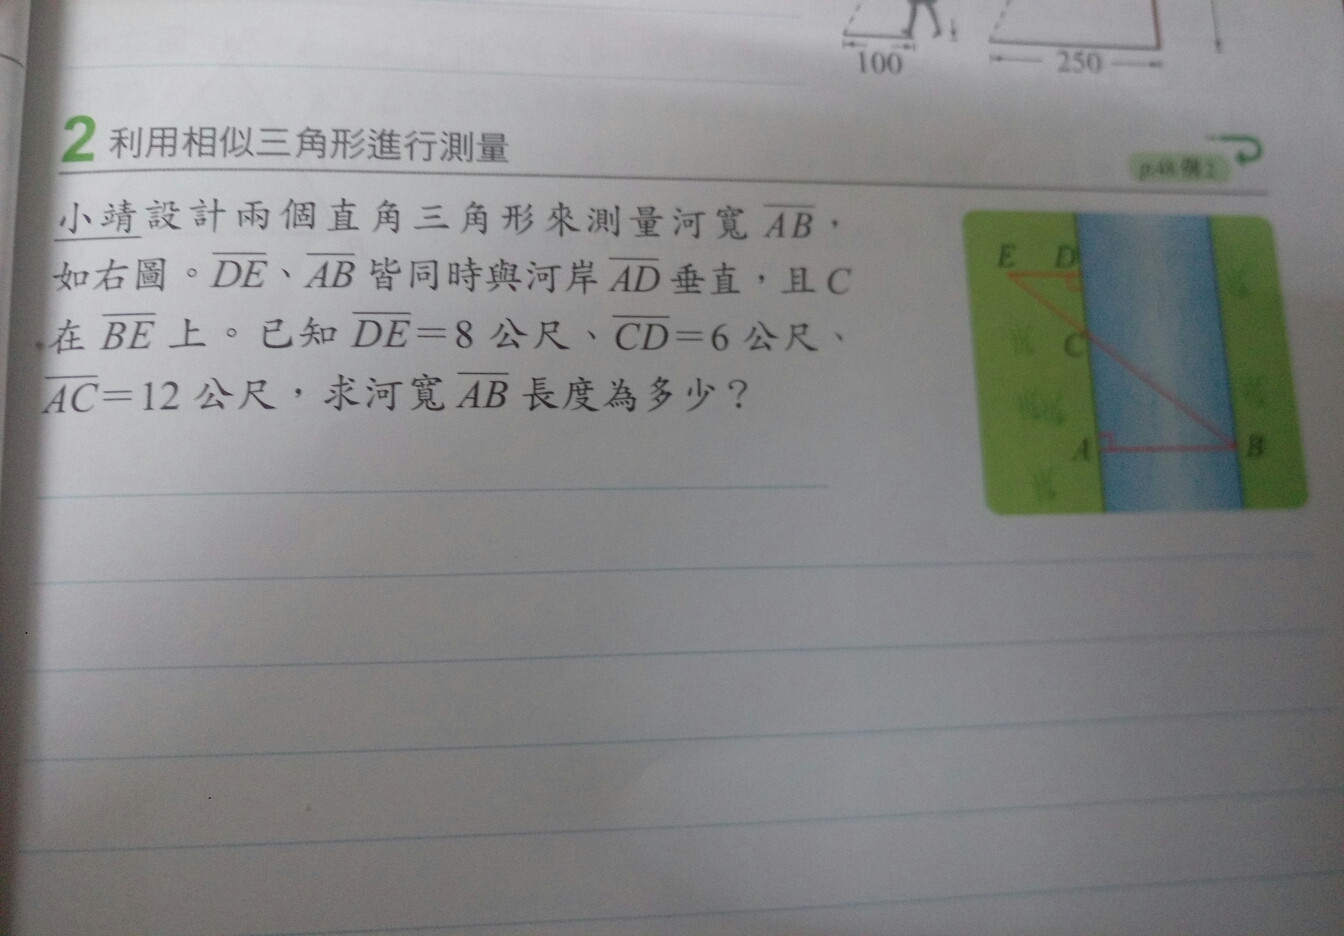 100
250
2 利用相似三角形進行測量
p.48 例2
小靖設計兩個直角三角形來測量河寬 AB，
如右圖。DE、AB 皆同時與河岸 AD 垂直，且 C
在 BE 上。已知 DE=8 公尺、CD=6 公尺、
AC=12 公尺，求河寬 AB 長度為多少？
E D
C
A B